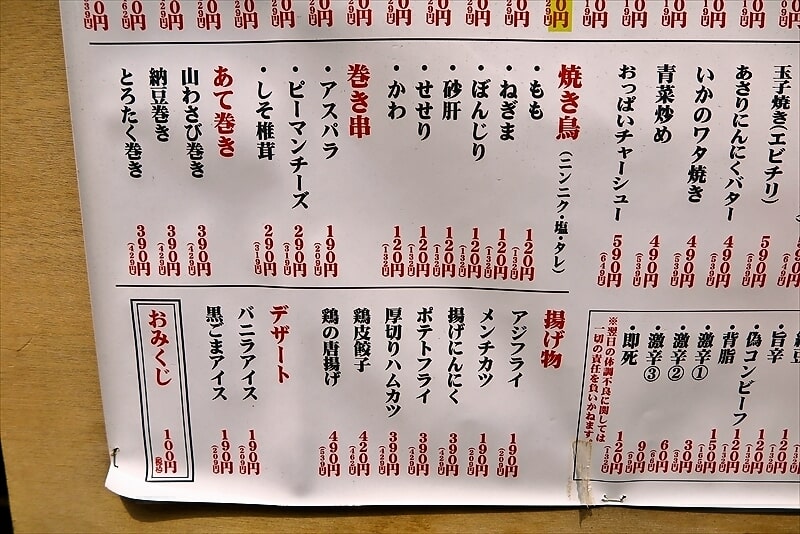 玉子焼き(エビチリ)
あさりにんにくバター 490円
いかのワタ焼き 490円
青菜炒め 490円
おっぱいチャーシュー 590円
焼き鳥 (ニンニク・塩・タレ)
・もも 120円 (132円)
・ねぎま 120円 (132円)
・ぼんじり 120円 (132円)
・砂肝 120円 (132円)
・せせり 120円 (132円)
・かわ 120円 (132円)
巻き串
・アスパラ 190円 (209円)
・ピーマンチーズ 290円 (319円)
・しそ椎茸 290円 (319円)
あて巻き
山わさび巻き 390円 (429円)
納豆巻き 390円 (429円)
とろたく巻き 390円 (429円)
・旨辛 120円
・偽コンビーフ 120円
・背脂 120円
・激辛① 150円
・激辛② 30円
・激辛③ 60円
・即死 120円
※翌日の体調不良に関しては
一切の責任を負いかねます。
揚げ物
アジフライ 190円 (209円)
メンチカツ 190円 (209円)
揚げにんにく 390円
ポテトフライ 390円
厚切りハムカツ 390円
鶏皮餃子 420円
鶏の唐揚げ 490円 (539円)
デザート
バニラアイス 190円 (209円)
黒ごまアイス 190円 (209円)
おみくじ 100円